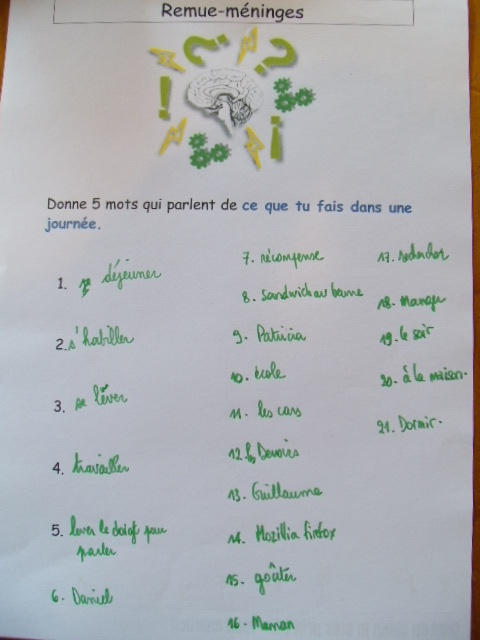 Remue-méninges
Donne 5 mots qui parlent de ce que tu fais dans une
journée.
1. déjeuner
2. s'habiller
3. se lever
4. travailler
5. lever le doigt pour
parler
6. Daniel
7. récompense
8. sandwich au beurre
9. Patricia
10. école
11. les cars
12. les Devoirs
13. Guillaume
14. Mozillia firefox
15. goûter
16. Maman
17.
18. Manger
19. le soir
20. à la maison.
21. Dormir.